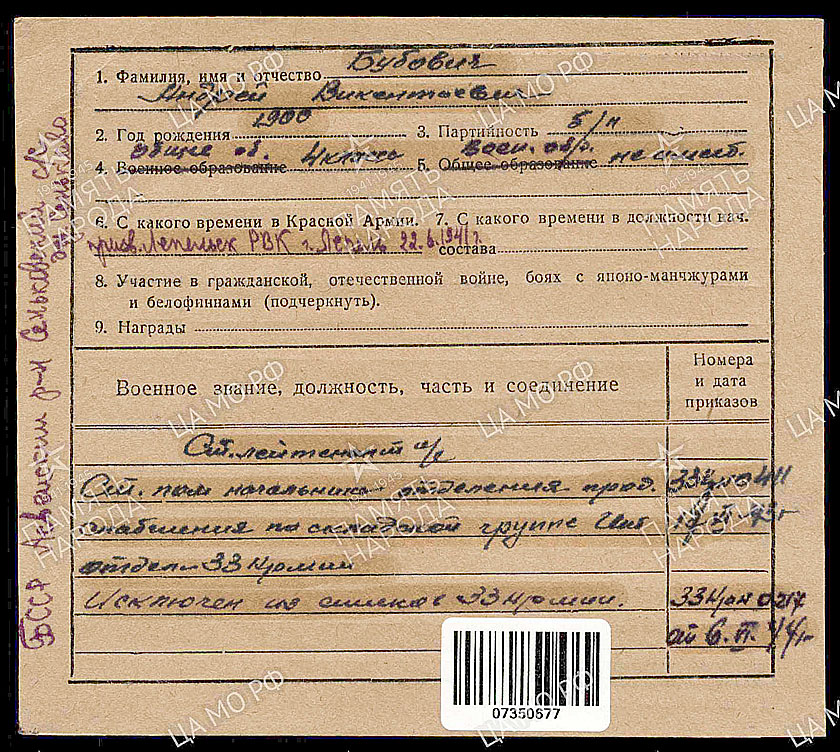 1. Фамилия, имя и отчество Бубович
Андрей Викентьевич
2. Год рождения 1900 3. Партийность б/п
общее об. 4 класса воен. обр. не имеет.
4. Военное образование 5. Общее образование
6. С какого времени в Красной Армии. 7. С какого времени в должности нач.
призв. Лепельск РВК г. Лепель 22.6.1941 г. состава
8. Участие в гражданской, отечественной войне, боях с японо-манчжурами
и белофиннами (подчеркнуть).
9. Награды
Военное звание, должность, часть и соединение
Номера
и дата
приказов
Ст. лейтенант а/с
Ст. пом начальника отделения прод. 33
снабжения по складской группе Инт
отдел 33 Армии
Исключен из списков 33 Армии. 33 0217
от 6.
БССР р-н Сеньковский с/с
дер. Сеньково
07350677
ЦА МО РФ
ПАМЯТЬ
НАРОДА
1941-1945